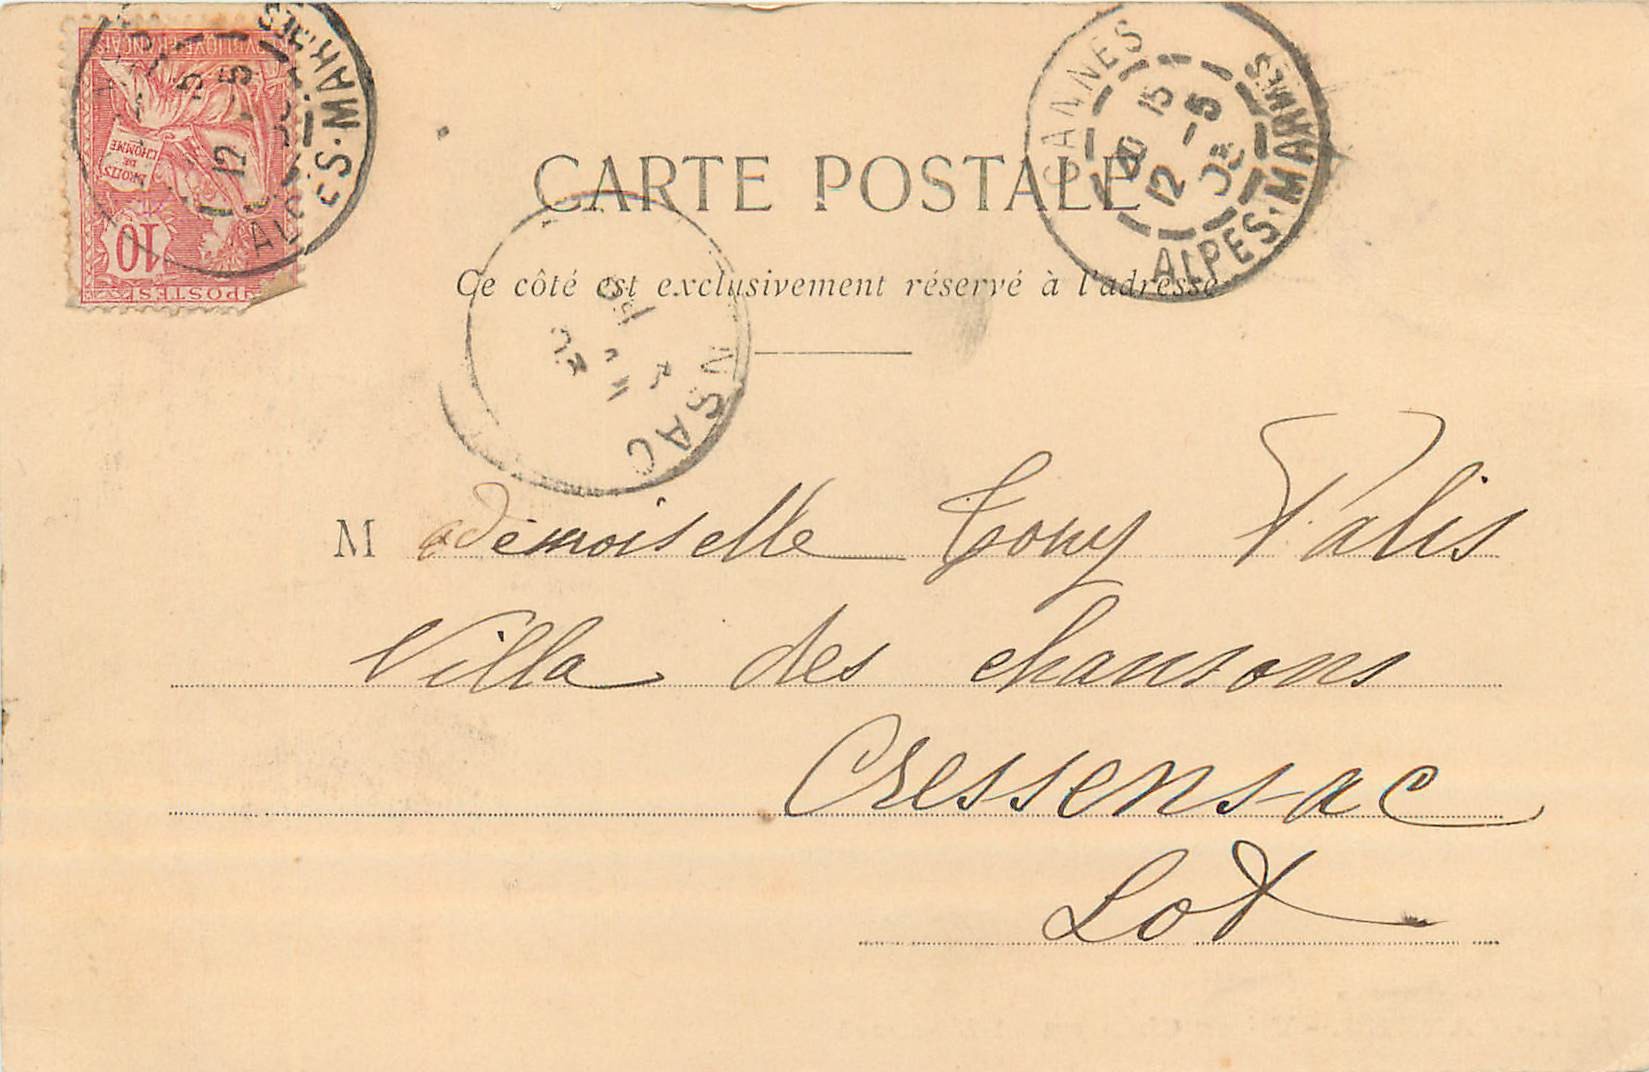 RÉPUBLIQUE FRANÇAISE
DROITS
DE
L'HOMME
10
POSTES
12 -5
CANNES
15
12 -5
ALPES-MARMES
CARTE POSTALE
Ce côté est exclusivement réservé à l'adresse
NSAC
Mademoiselle Tony Valis
Villa des chansons
Cressensac
Lot